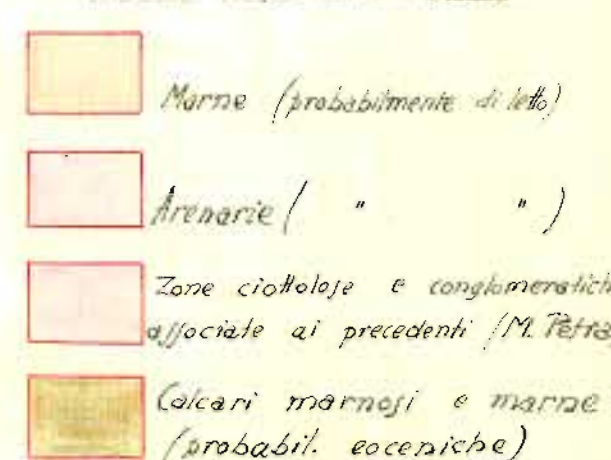 Marne (probabilmente di letto)
Arenarie ( " " )
Zone ciottolose e conglomeratich
associate ai precedenti (M. Petra
Calcari marnosi e marne
(probabil. eoceniche)